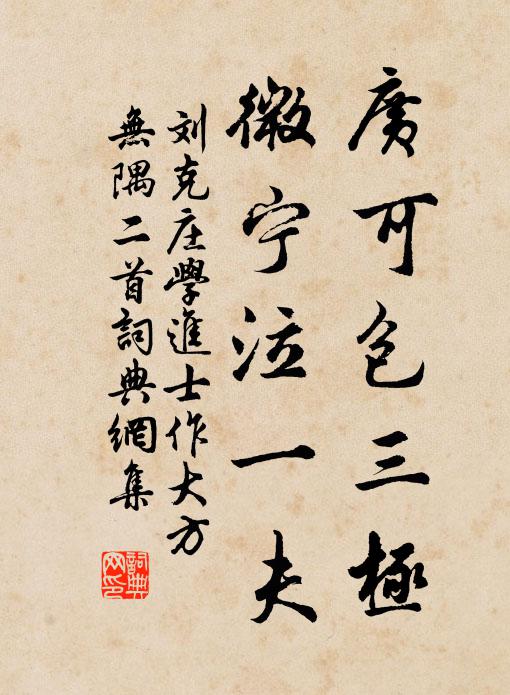 廣可包三極
微宁泣一夫
刘克庄學進士作大方
無隅二首詞典網集
詞典
网印